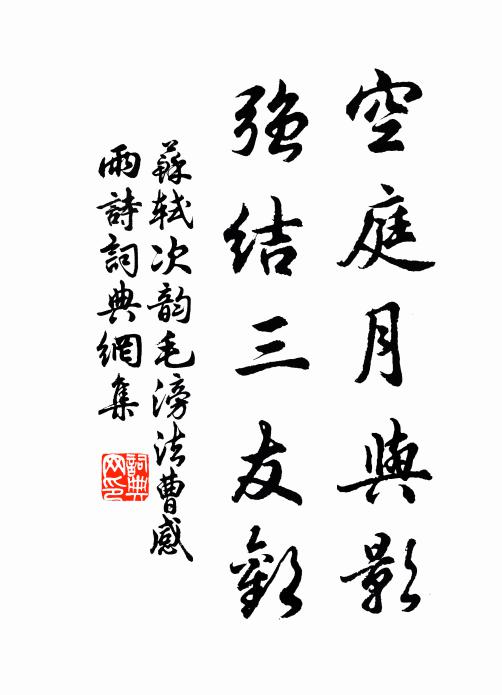 空庭月與影
強結三友歡
蘇軾次韵毛滂法曹感
雨詩詞典網集
詞典
网印